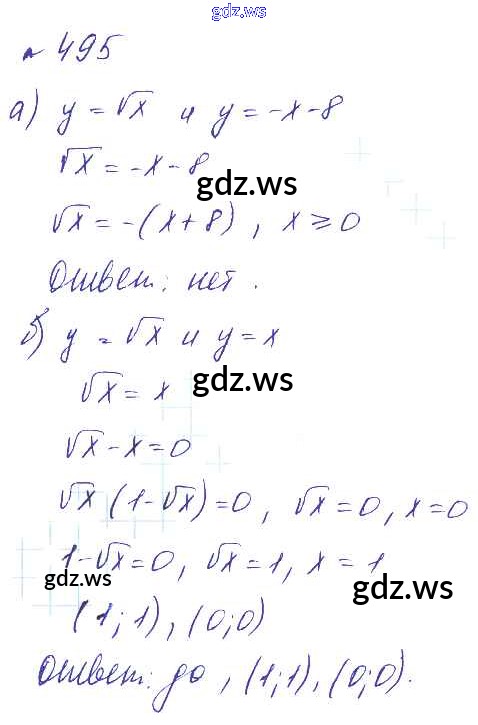 gdz.ws
№ 495
а) y = √x и y = -x-8
√x = -x-8
gdz.ws
√x = -(x+8), x ≥ 0
Ответ: нет.
б) y = √x и y = x
gdz.ws
√x = x
√x - x = 0
√x (1-√x) = 0, √x = 0, x = 0
1-√x = 0, √x = 1, x = 1
gdz.ws gdz.ws
(1;1), (0;0)
Ответ: да, (1;1), (0;0).